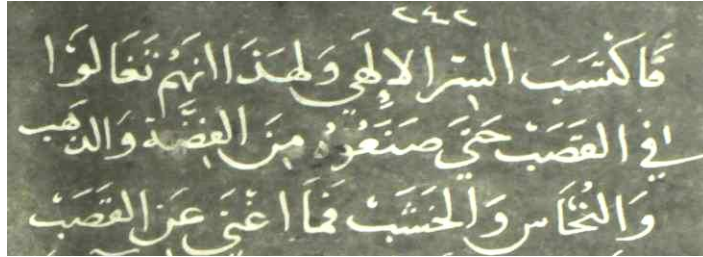 ٢٤٢
فَاكْتَسَبَ السِّرَ الالهَى وَلهَذَا انهُم تَغَالَوْا
فى القَصَبْ حَتىَ صَنَعُوُهُ مِنَ الفِضَّة وَالذهَب
وَالنُحَاس وَالخَشَبْ فَمَا اغْنىَ عَن القَصَبْ